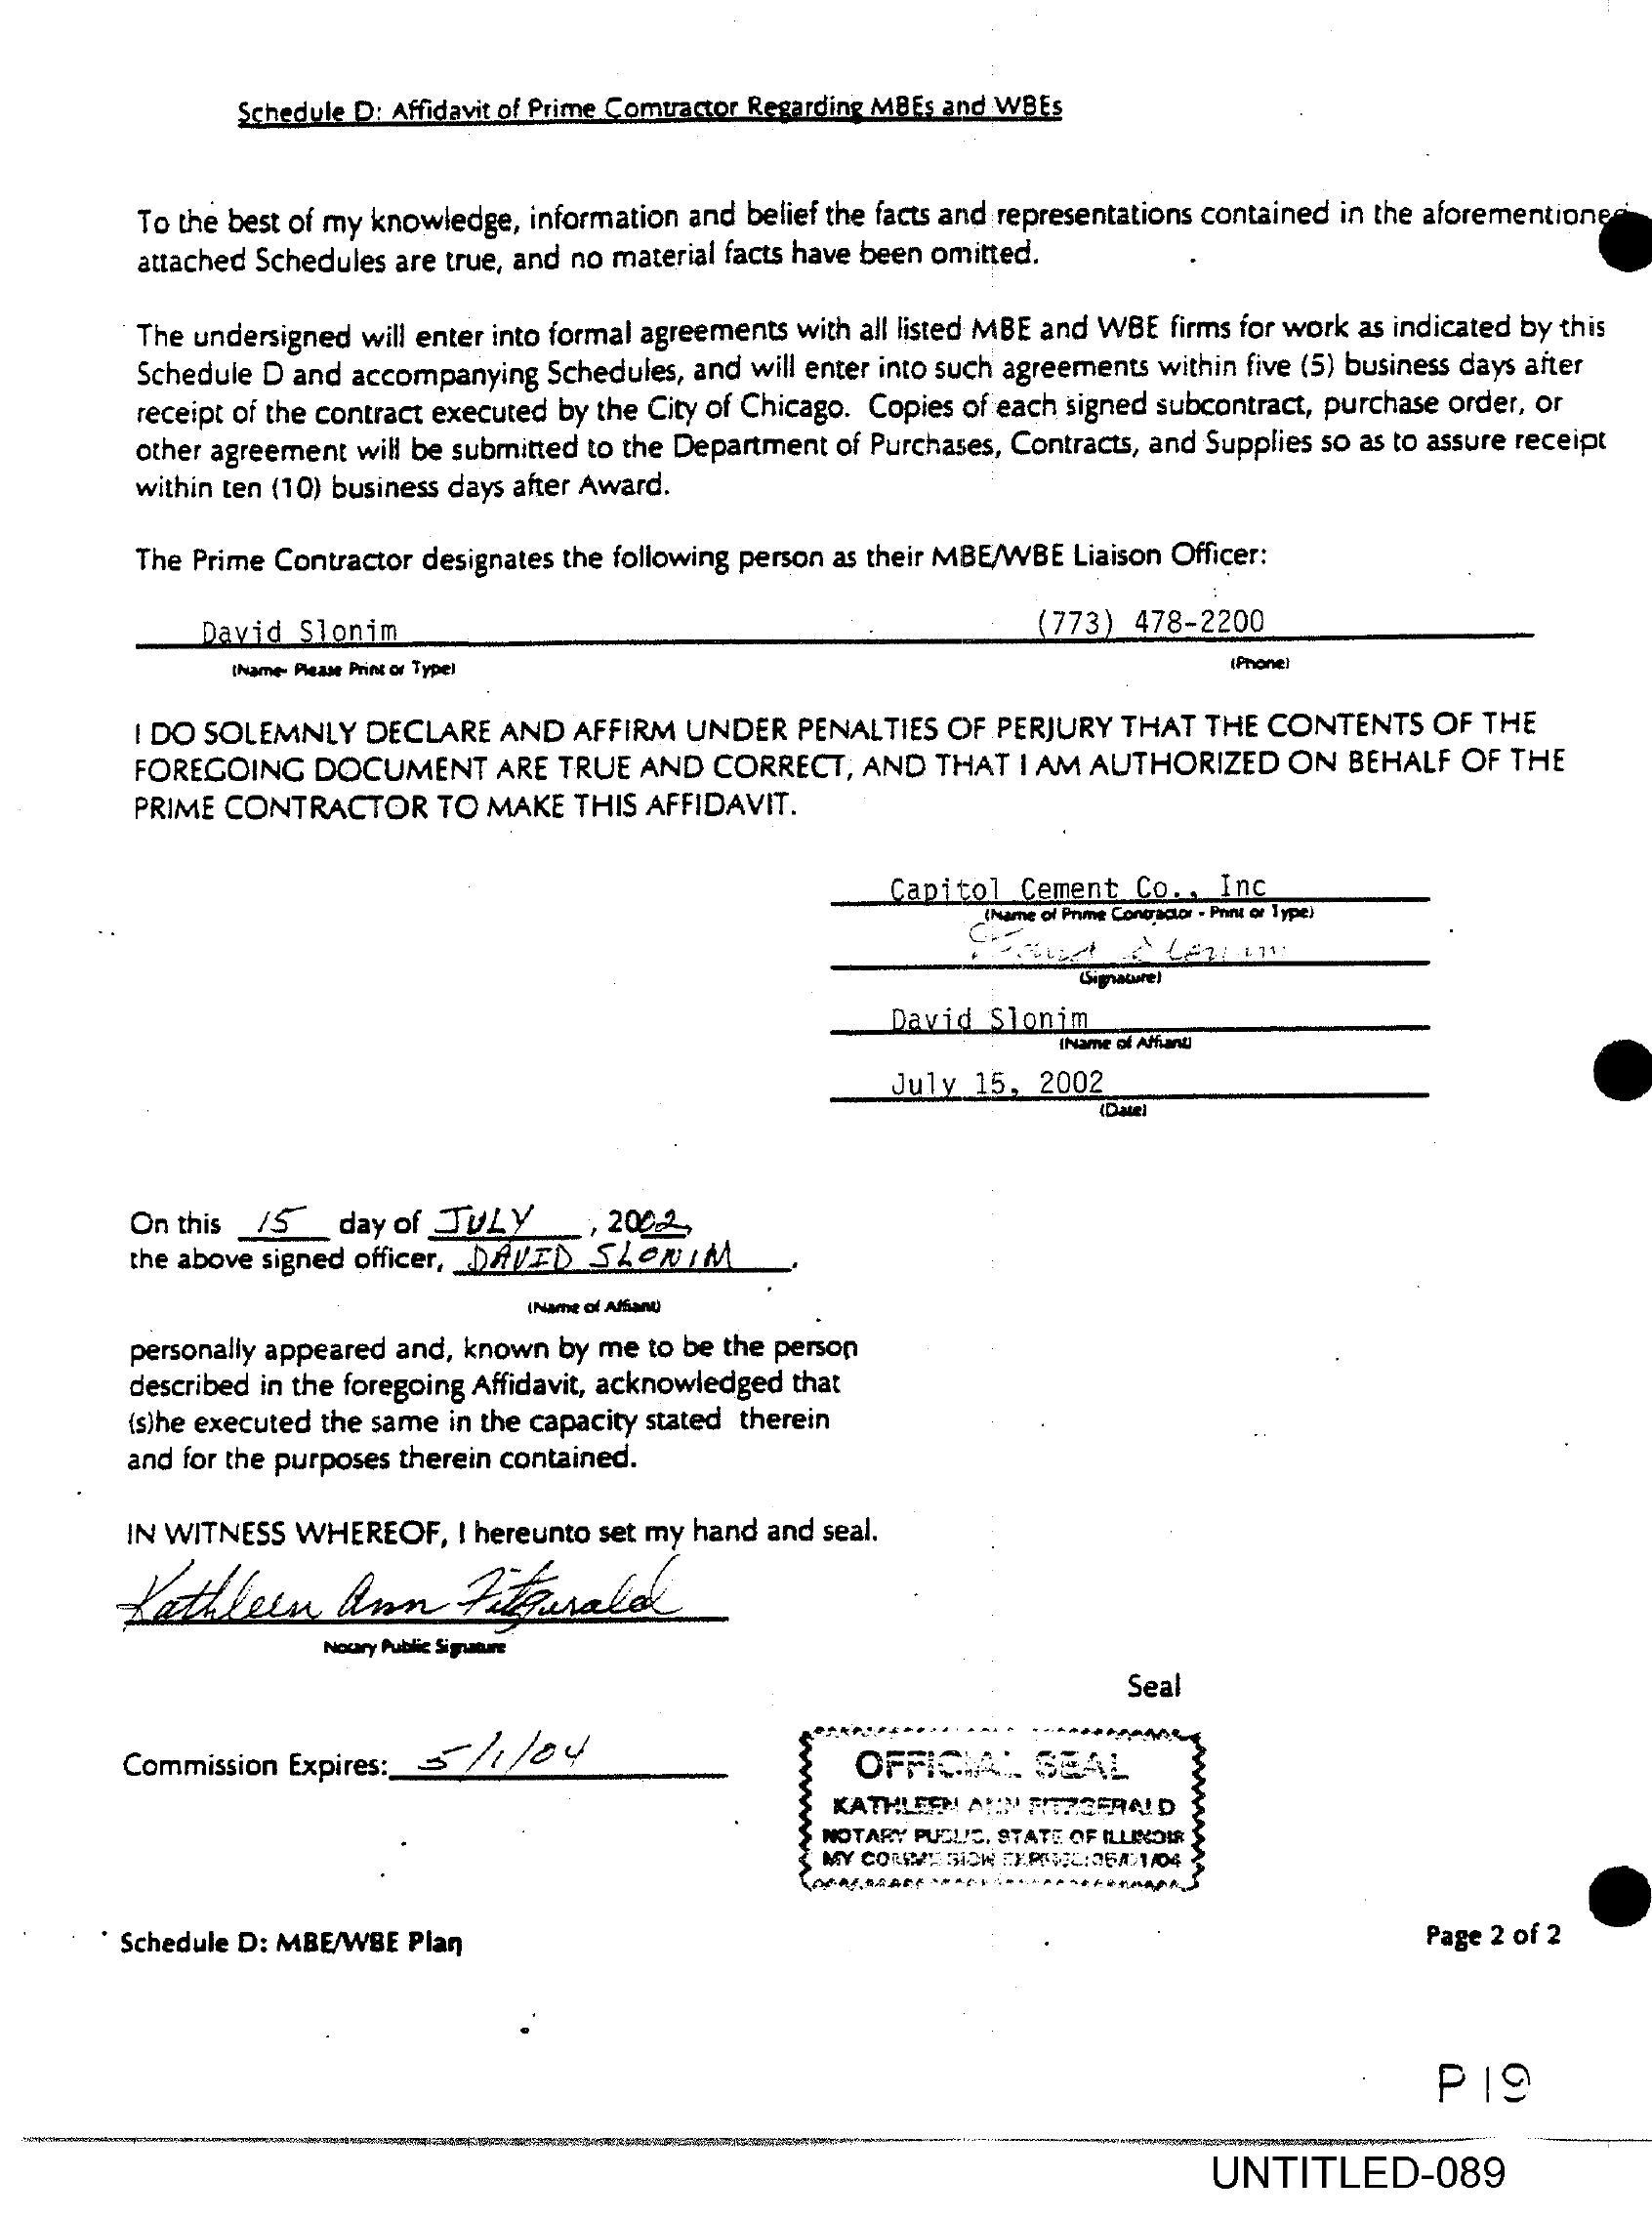 Schedule D: Affidavit of Prime Comtractor Regarding MBEs and WBEs
To the best of my knowledge, information and belief the facts and representations contained in the aforementioned
attached Schedules are true, and no material facts have been omitted.
The undersigned will enter into formal agreements with all listed MBE and WBE firms for work as indicated by this
Schedule D and accompanying Schedules, and will enter into such agreements within five (5) business days after
receipt of the contract executed by the City of Chicago. Copies of each signed subcontract, purchase order, or
other agreement will be submitted to the Department of Purchases, Contracts, and Supplies so as to assure receipt
within ten (10) business days after Award.
The Prime Contractor designates the following person as their MBE/WBE Liaison Officer:
David Slonim (773) 478-2200
(Name- Please Print or Type) (Phone)
I DO SOLEMNLY DECLARE AND AFFIRM UNDER PENALTIES OF PERJURY THAT THE CONTENTS OF THE
FOREGOING DOCUMENT ARE TRUE AND CORRECT, AND THAT I AM AUTHORIZED ON BEHALF OF THE
PRIME CONTRACTOR TO MAKE THIS AFFIDAVIT.
Capitol Cement Co., Inc
(Name of Prime Contractor - Print or Type)
David Slonim
(Signature)
David Slonim
(Name of Affiant)
July 15, 2002
(Date)
On this 15 day of JULY, 2002,
the above signed officer, DAVID SLONIM.
(Name of Affiant)
personally appeared and, known by me to be the person
described in the foregoing Affidavit, acknowledged that
(s)he executed the same in the capacity stated therein
and for the purposes therein contained.
IN WITNESS WHEREOF, I hereunto set my hand and seal.
Kathleen Ann Fitzgerald
Notary Public Signature
Seal
Commission Expires: 5/1/04
OFFICIAL SEAL
KATHLEEN ANN FITZGERALD
NOTARY PUBLIC, STATE OF ILLINOIS
MY COMMISSION EXPIRES:05/01/04
Schedule D: MBE/WBE Plan Page 2 of 2
P 19
UNTITLED-089